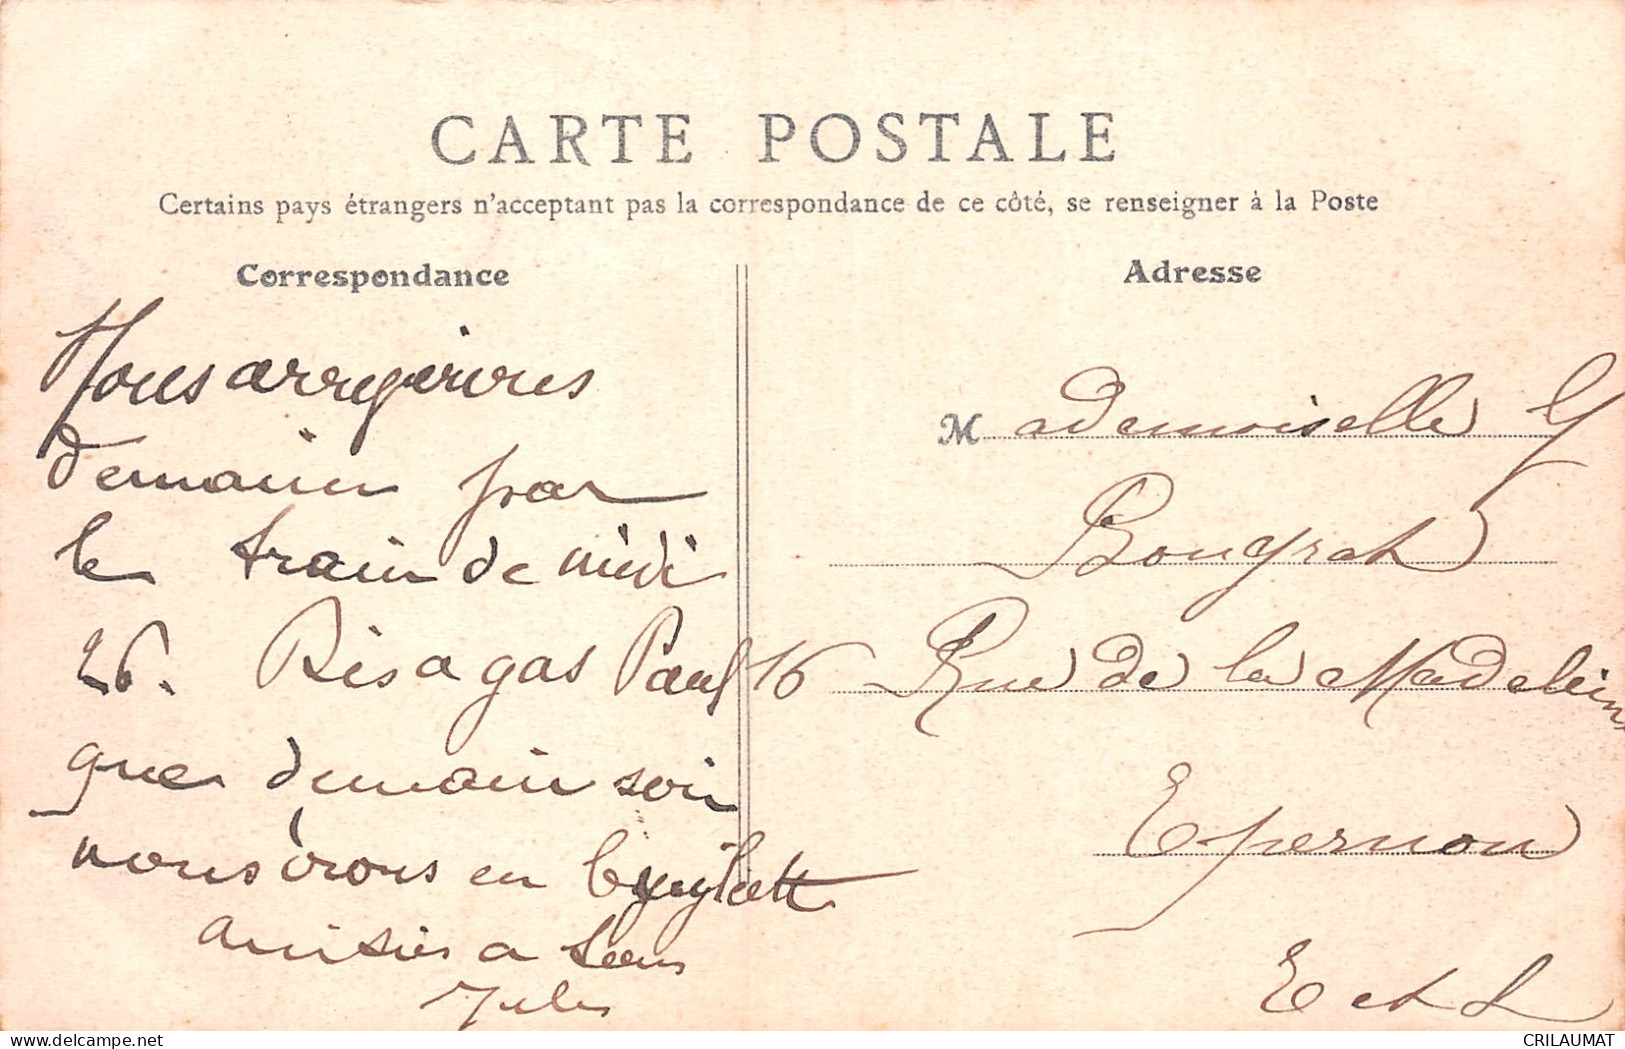 CARTE POSTALE
Certains pays étrangers n'acceptant pas la correspondance de ce côté, se renseigner à la Poste
Correspondance
Nous arrriverons
demain par
le train de midi
26. Dis a gas Paul
que demain soir
nous irons en
amitiés a tous
Jules
Adresse
Mademoiselle G
Bougrat
16 Rue de la Madeleine
Epernon
E et L
CRILAUMAT